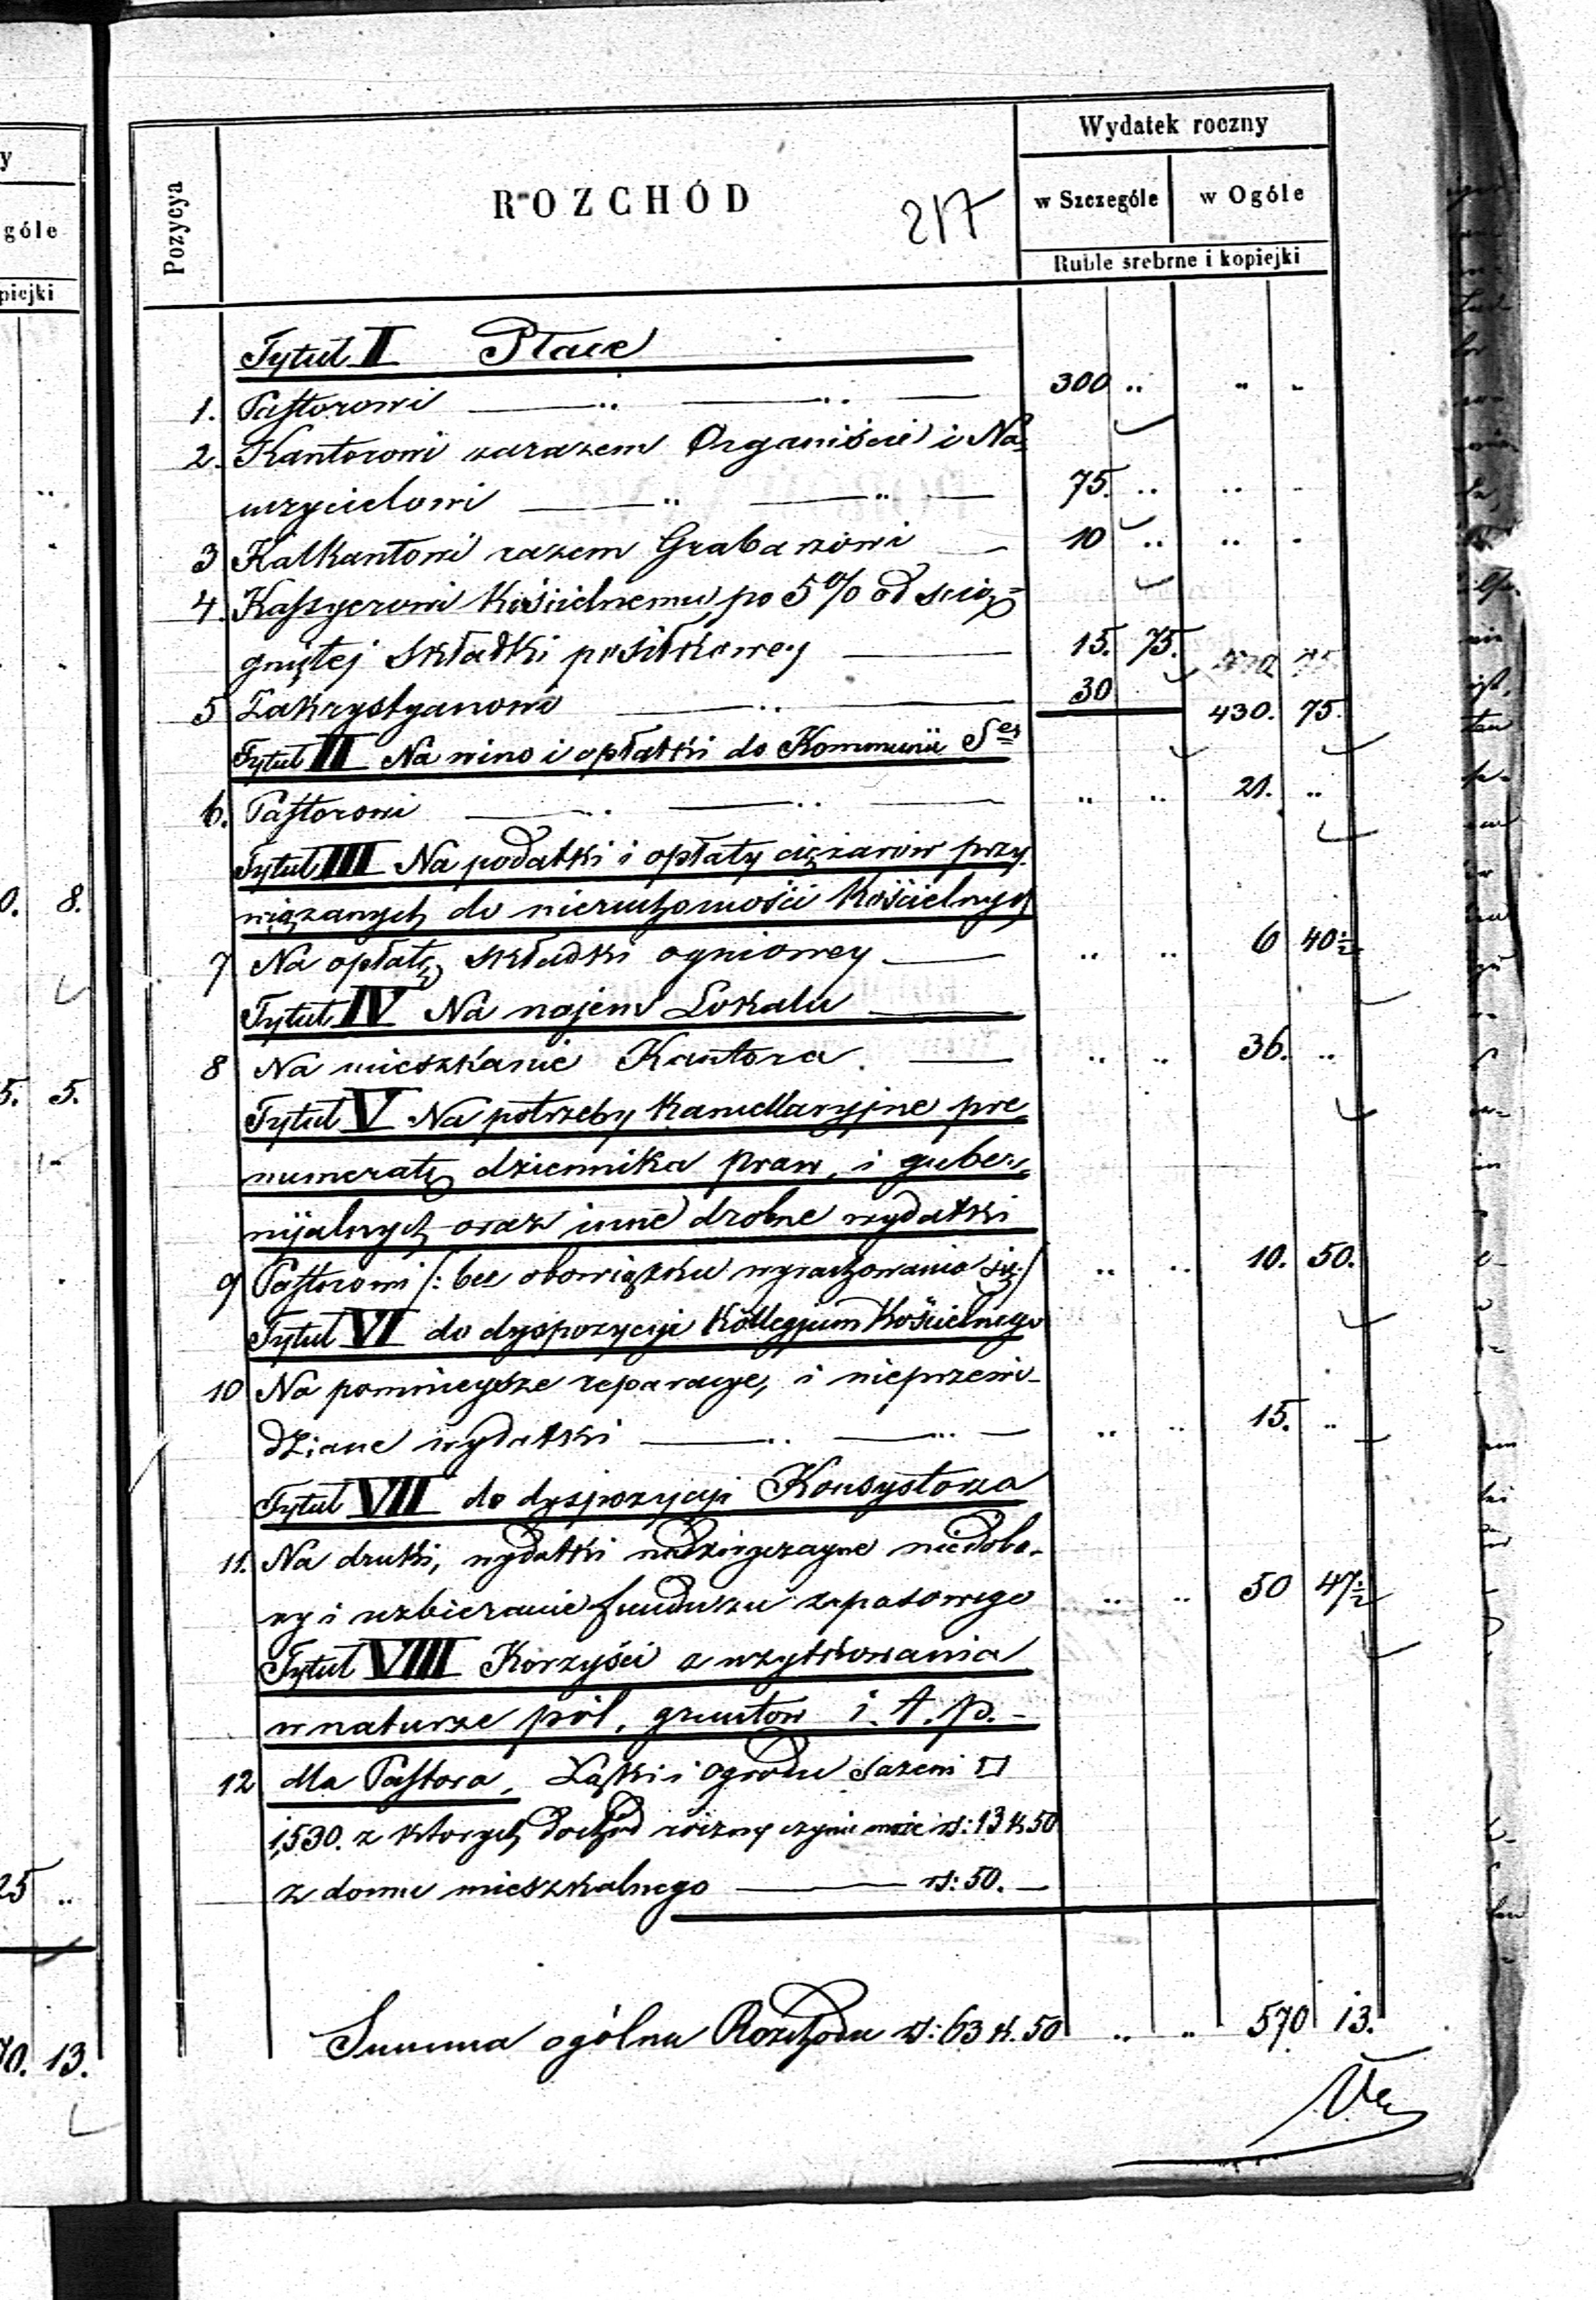 y
góle
piejki
0. 8.
5. 5.
25 ..
70. 13.
Pozycya
ROZCHÓD
217
Wydatek roczny
w Szczególe
w Ogóle
Ruble srebrne i kopiejki
Tytuł I Płace
1. Pastorowi — .. — .. — 300 .. .. ..
2. Kantorowi zarazem Organiście i Na-
uczycielowi — .. — .. — 75. .. .. ..
3 Kalkantowi razem Grabarzowi — 10 .. .. ..
4. Kassyerowi Kościelnemu, po 5% od ścią-
gniętej składki posiłkowey — 15. 75.
5 Zakrystyanowi — .. — 30 430. 75.
Tytuł II Na wino i opłatki do Kommunii Sej
6. Pastorowi — .. — .. — .. .. 21. ..
Tytuł III Na podatki i opłaty ciężarów przy
wiązanych do nieruchomości Kościelnych
7 Na opłatę składki ogniowey — .. .. 6 40½
Tytuł IV Na najem Lokalu —
8 Na mieszkanie Kantora. — .. .. 36. ..
Tytuł V Na potrzeby Kancellaryjne pre
numeratę dziennika praw, i guber-
nijalnych oraz inne drobne wydatki
9 Pastorowi /: bez obowiązku wyrachowania się :/ .. .. 10. 50.
Tytuł VI do dyspozycyi Kollegjum Kościelnego
10 Na pomnieysze reparacye, i nieprzewi-
dziane wydatki — .. — .. — .. .. 15. ..
Tytuł VII do dyspozycyi Konsystorza
11. Na druki, wydatki nadzwyczayne niedobo-
ry i uzbieranie funduszu zapasowego .. .. 50 47½
Tytuł VIII Korzyści z użytkowania
w naturze pól, gruntow i. t. p. -
12 dla Pastora, Łąki i ogrodu sażeni □
1,530. z ktorych dochód roczny czynić może rs: 13 k 50
z domu mieszkalnego — rs: 50. —
Summa ogólna Rozchodu rs: 63 k. 50 .. .. 570 13.